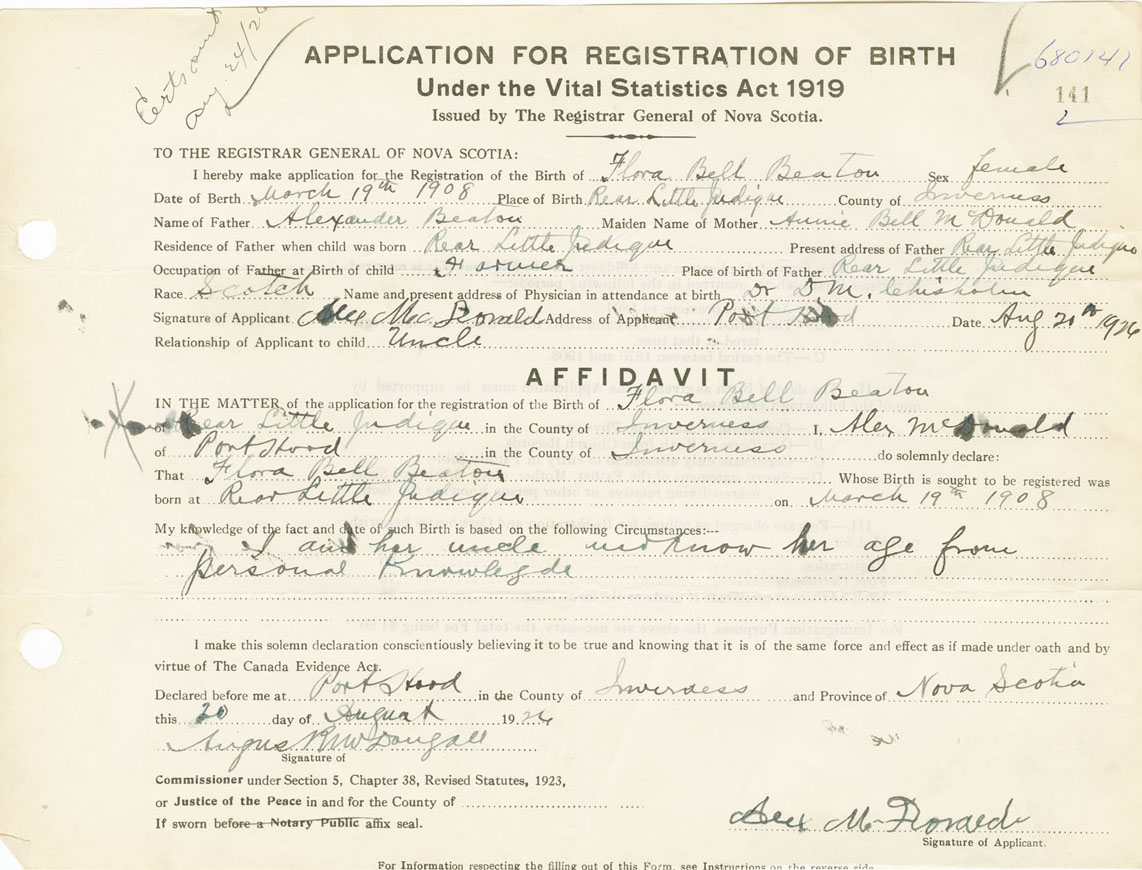 Certs sent
Aug. 24/26
680141
141
APPLICATION FOR REGISTRATION OF BIRTH
Under the Vital Statistics Act 1919
Issued by The Registrar General of Nova Scotia.
TO THE REGISTRAR GENERAL OF NOVA SCOTIA:
I hereby make application for the Registration of the Birth of Flora Bell Beaton Sex female
Date of Berth March 19th 1908 Place of Birth Rear Little Judique County of Inverness
Name of Father Alexander Beaton Maiden Name of Mother Annie Bell McDonald
Residence of Father when child was born Rear Little Judique Present address of Father Rear Little Judique
Occupation of Father at Birth of child Farmer Place of birth of Father Rear Little Judique
Race Scotch Name and present address of Physician in attendance at birth Dr D. M. Chisholm
Signature of Applicant Alex McDonald Address of Applicant Port Hood Date Aug 20th 1926
Relationship of Applicant to child Uncle
AFFIDAVIT
IN THE MATTER of the application for the registration of the Birth of Flora Bell Beaton
of Rear Little Judique in the County of Inverness I, Alex McDonald
of Port Hood in the County of Inverness do solemnly declare:
That Flora Bell Beaton Whose Birth is sought to be registered was
born at Rear Little Judique on March 19th 1908
My knowledge of the fact and date of such Birth is based on the following Circumstances:--
I am her uncle and know her age from
personal Knowlegde
I make this solemn declaration conscientiously believing it to be true and knowing that it is of the same force and effect as if made under oath and by
virtue of The Canada Evidence Act.
Declared before me at Port Hood in the County of Inverness and Province of Nova Scotia
this 20 day of August 1926
Angus R McDougall
Signature of
Commissioner under Section 5, Chapter 38, Revised Statutes, 1923,
or Justice of the Peace in and for the County of
If sworn before a Notary Public affix seal.
Alex McDonald
Signature of Applicant.
For Information respecting the filling out of this Form, see Instructions on the reverse side